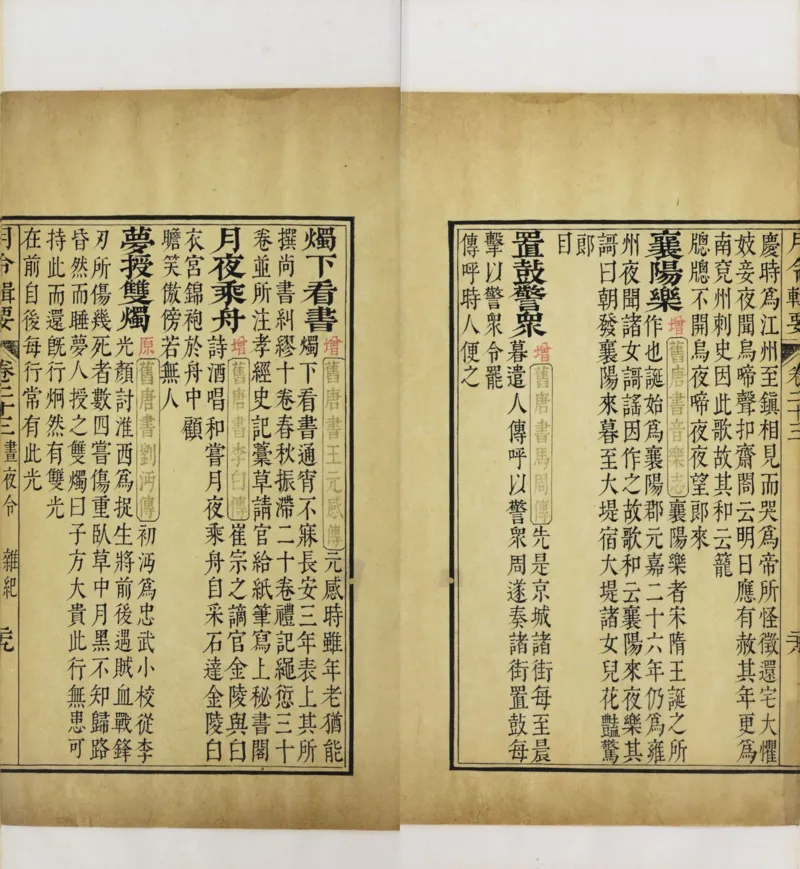 慶時爲江州至鎮相見而哭爲帝所怪徵還宅大懼
妓妾夜聞烏啼聲扣齋閤云明日應有赦其年更爲
南兖州刺史因此歌故其和云籠
牕牕不開烏夜啼夜夜望郎來
襄陽樂增舊唐書音樂志襄陽樂者宋隋王誕之所
作也誕始爲襄陽郡元嘉二十六年仍爲雍
州夜聞諸女謌謠因作之故歌和云襄陽來夜樂其
謌曰朝發襄陽來暮至大堤宿大堤諸女兒花豔驚
郎
目
置鼓警衆增舊唐書馬周傳先是京城諸街每至晨
暮遣人傳呼以警衆周遂奏諸街置鼓每
擊以警衆令罷
傳呼時人便之
月令輯要 卷二十三
燭下看書增舊唐書王元感傳元感時雖年老猶能
燭下看書通宵不寐長安三年表上其所
撰尚書糾繆十卷春秋振滯二十卷禮記繩愆三十
卷並所注孝經史記藁草請官給紙筆寫上秘書閣
月夜乘舟增舊唐書李白傳崔宗之謫官金陵與白
詩酒唱和嘗月夜乘舟自采石達金陵白
衣宮錦袍於舟中顧
瞻笑傲傍若無人
夢授雙燭原舊唐書劉沔傳初沔爲忠武小校從李
光顏討淮西爲捉生將前後遇賊血戰鋒
刃所傷幾死者數四嘗傷重臥草中月黑不知歸路
昏然而睡夢人授之雙燭曰子方大貴此行無患可
持此而還旣行炯然有雙光
在前自後每行常有此光
月令輯要 卷二十三 晝夜令 雜紀